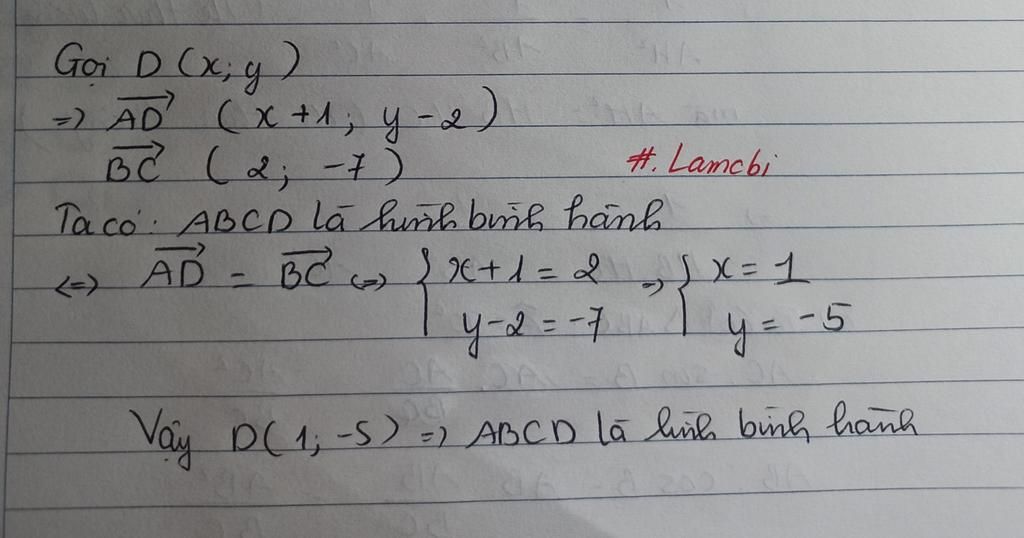 Gọi D (x; y)
=> AD→ (x+1; y-2)
BC→ (2; -7)
#. Lamcbi
Ta có: ABCD là hình bình hành
<=> AD→ = BC→ <=> { x+1 = 2 => { x = 1
y-2 = -7 y = -5
Vậy D(1; -5) => ABCD là hình bình hành